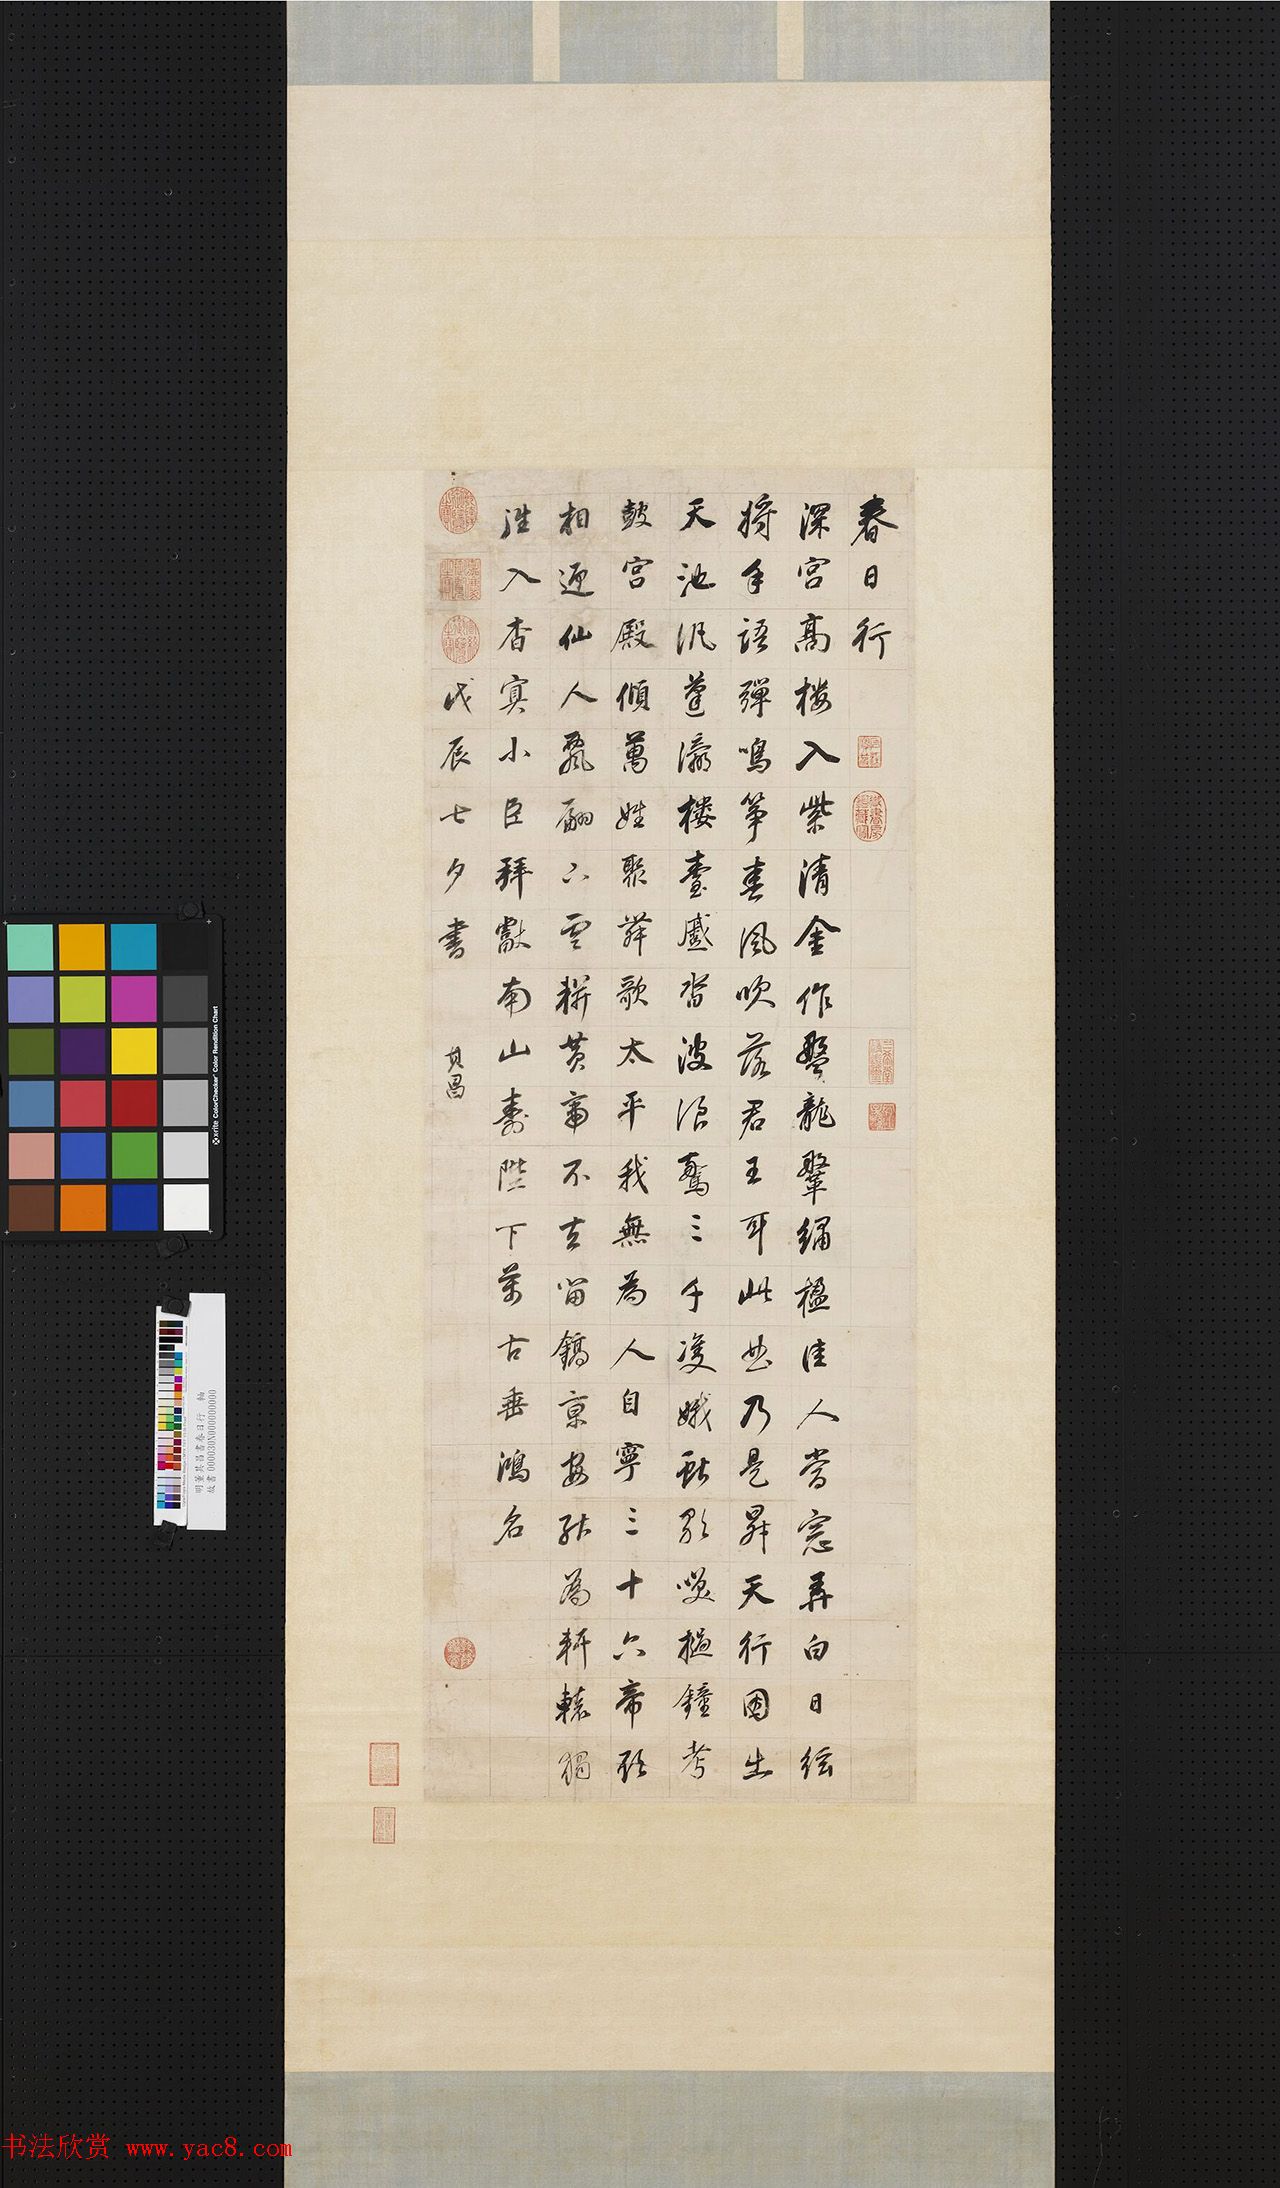 春日行
深宮高樓入紫清金作盤龍繡楹佳人當窓弄白日絃
將手語彈鳴箏春風吹落君王耳此曲乃是昇天行因出
天池汎蓬瀛樓臺蹙沓波浪驚三千雙娥獻歌笑撾鐘考
鼓宮殿傾萬姓聚舞歌太平我無為人自寧三十六帝欲
相迎仙人飄翩下雲軿黃帝不去留鎬京安能為軒轅獨
往入杳冥小臣拜獻南山壽陛下萬古垂鴻名
戊辰七夕書 其昌
x·rite ColorChecker Color Rendition Chart
明董其昌書春日行 軸
故書000030N000000000
书法欣赏 www.yac8.com